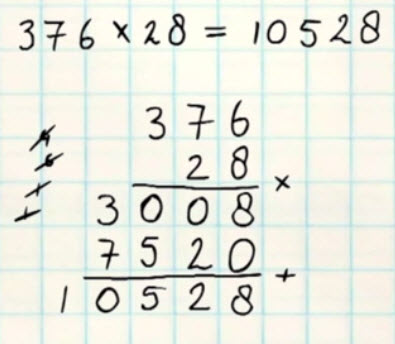 376 × 28 = 10528
376
28 ×
3008
7520 +
10528